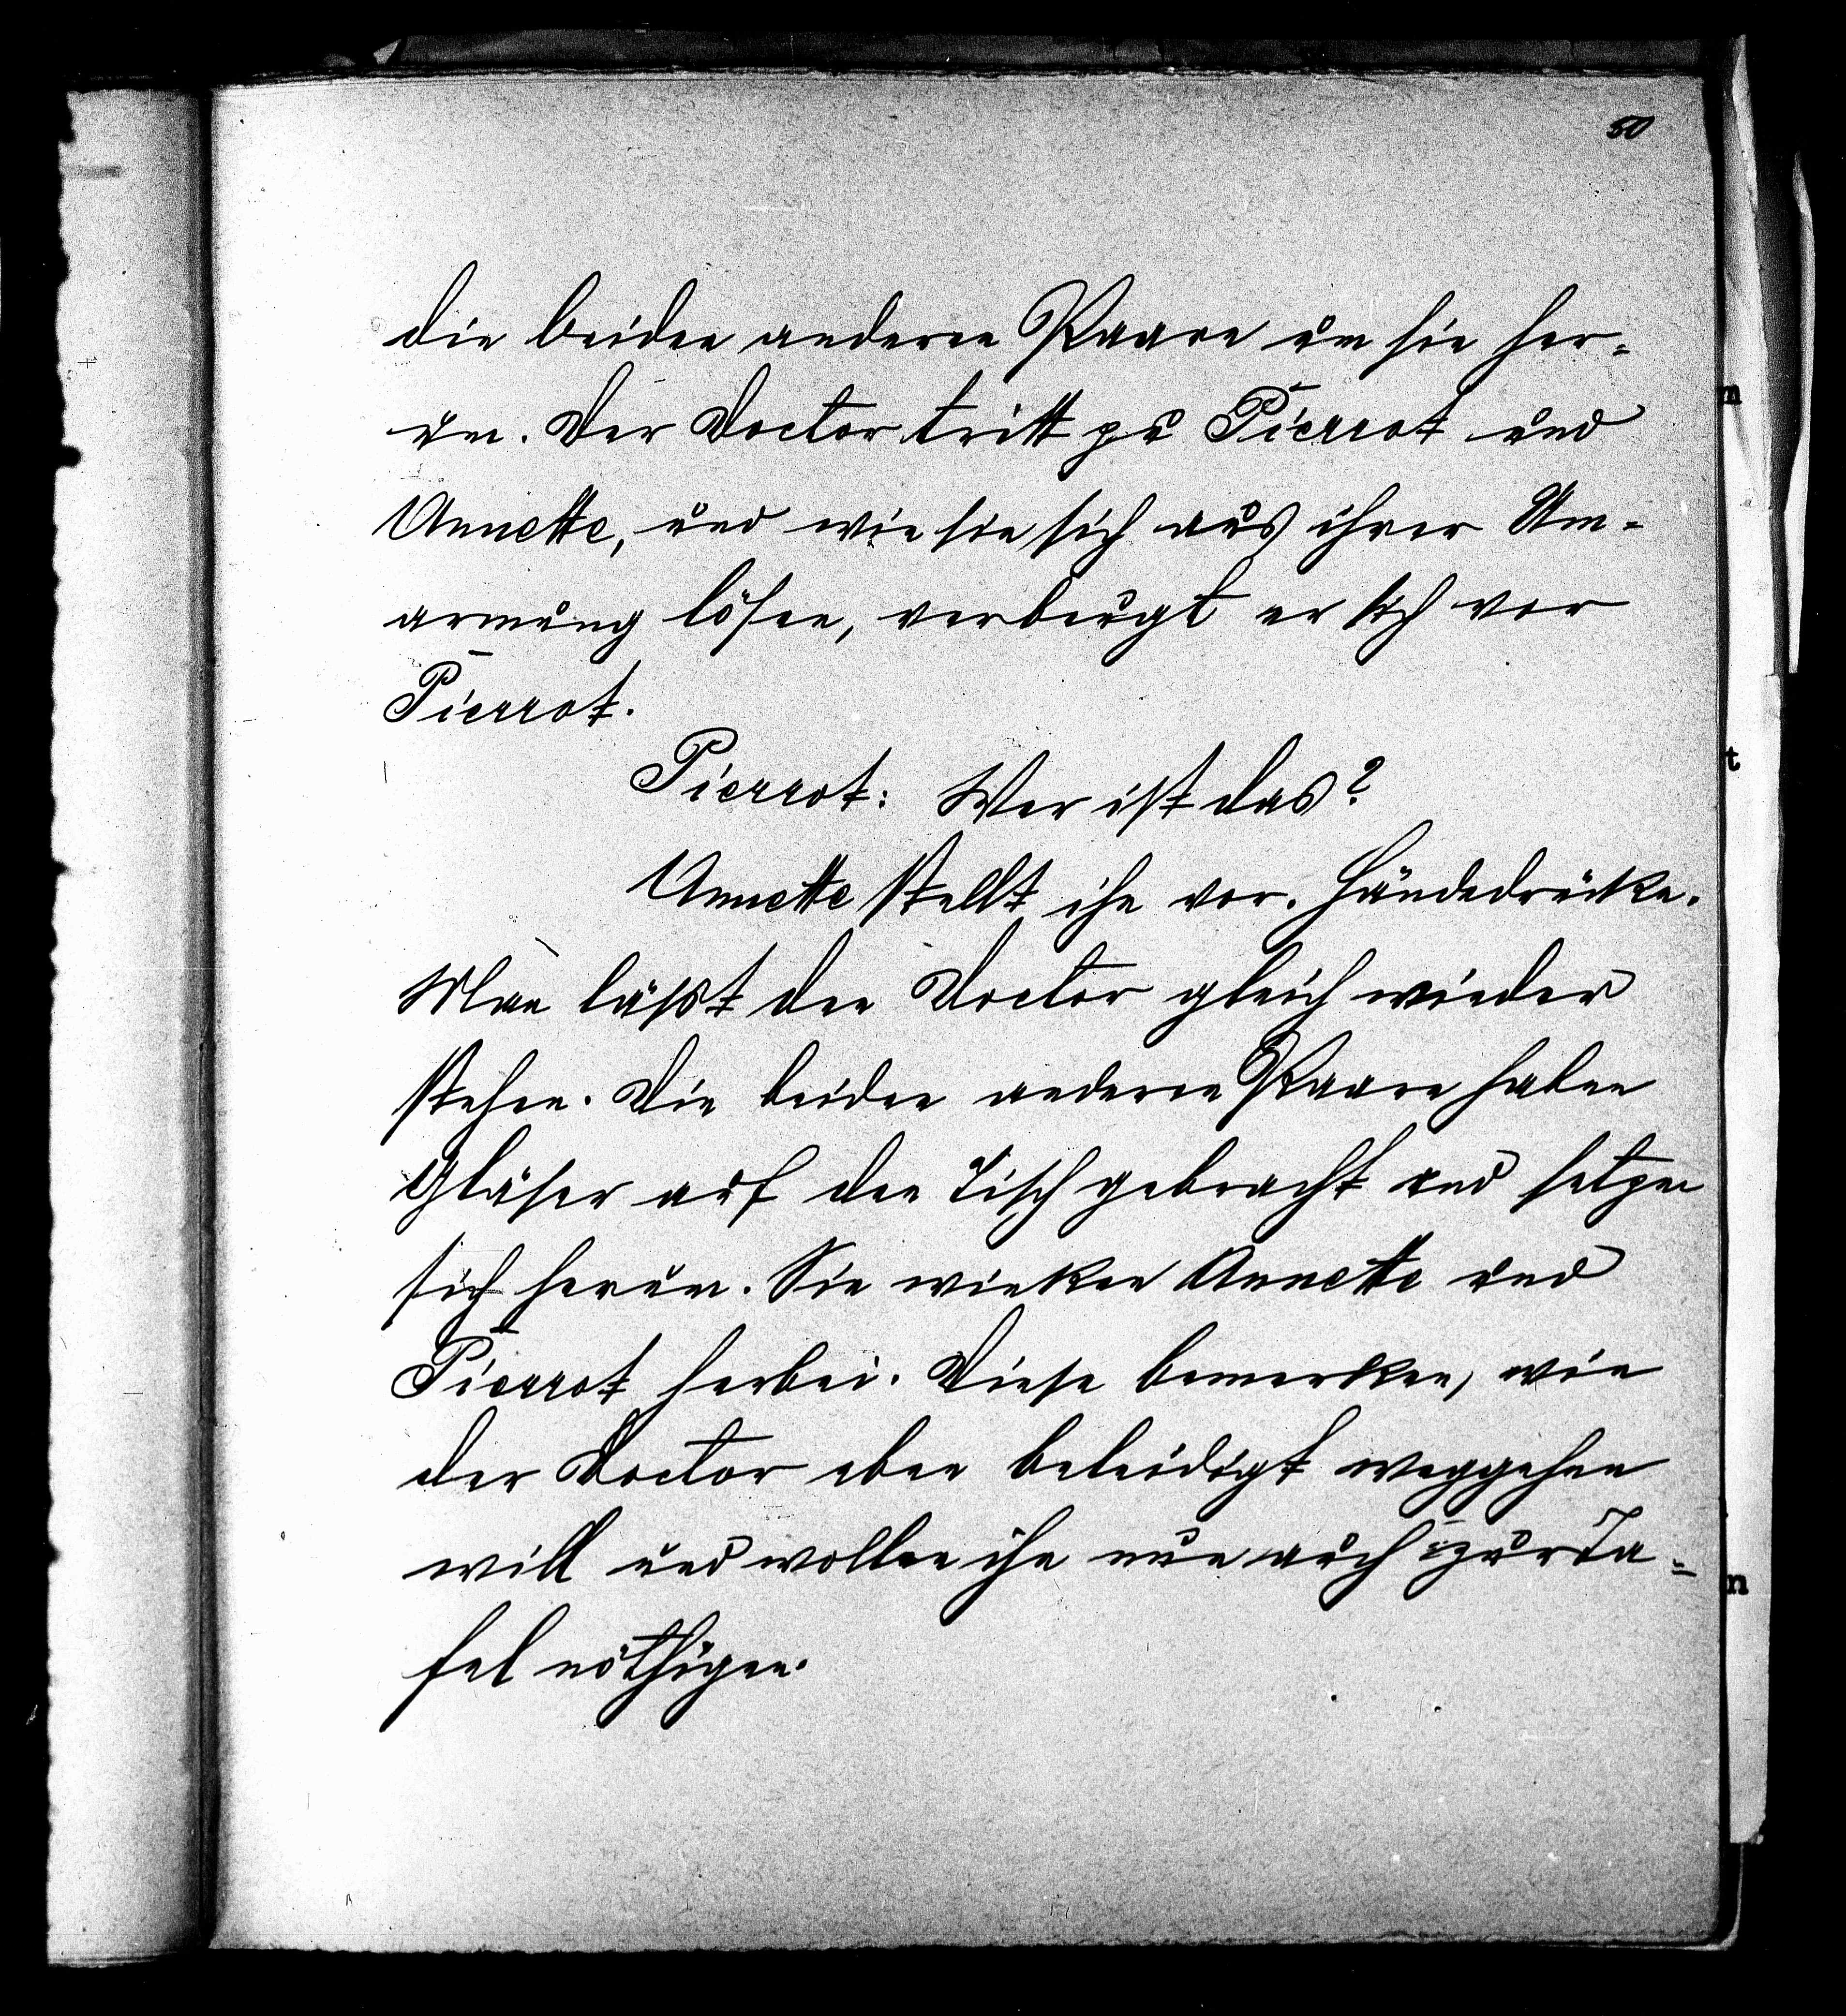 50
die beiden anderen Paare um sie her-
um. Der Doctor tritt zu Pierrot und
Annette, und wie sie sich aus ihrer Um-
armung lösen, verbeugt er sich vor
Pierrot.
Pierrot: Wer ist das?
Annette stellt ihn vor. Händedrücke.
Man läßt den Doctor gleich wieder
stehen. Die beiden anderen Paare haben
Gläser auf den Tisch gebracht und setzen
sich herum. Sie winken Annette und
Pierrot herbei. Diese bemerken, wie
der Doctor eben beleidigt weggehen
will und wollen ihn nun auch zur Ta-
fel nöthigen.
n
t
n